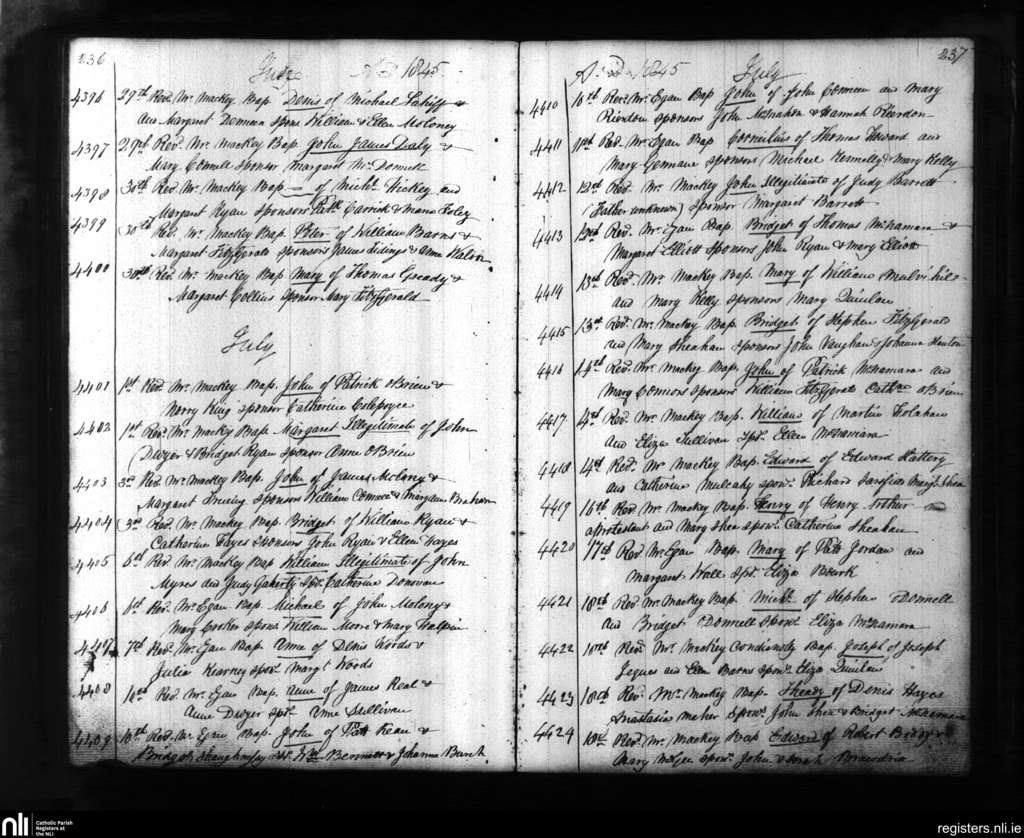 236
July A.D. 1845
4396 29th Revd. Mr. Mackey Bap. Denis of Michael &
Margaret spons William & Ellen Moloney
4397 29th Revd. Mr. Mackey Bap. John James Daly &
Mary Connell Sponsor Margaret Mc. Donnell
4398 30th Revd. Mr. Mackey Bap — of Michl. Hickey and
Margaret Ryan Sponsors Patk Carrick & Foley
4399 30th Revd. Mr. Mackey Bap. Peter of William Barns &
Margaret Fitzgerald sponsors James & Anne
4400 30th Revd. Mr. Mackey Bap Mary of Thomas Gready &
Margaret Collins sponsor Mary Fitzgerald
July
4401 1st Revd. Mr. Mackey Bap. John of Patrick OBrien &
Norry King sponsor Catherine
4402 1st Revd. Mr. Mackey Bap. Margaret Illegitimate of John
Dwyer & Bridget Ryan sponsor Anne OBrien
4403 3rd Revd Mr. Mackey Bap. John of James Molony &
Margaret sponsors William &
4404 3rd Revd. Mr. Mackey Bap. Bridget of William Ryan &
Catherine Hayes sponsors John Ryan & Ellen Hayes
4405 6th Revd. Mr. Mackey Bap William Illegitimate of John
Myres and Judy Spt. Catherine Donovan
4406 6th Revd. Mr. Egan Bap. Michael of John Molony &
Mary spons William & Mary Halpin
4407 7th Revd. Mr. Egan Bap. Anne of Denis Woods &
Julia Kearney spons. Margt Woods
4408 10th Revd. Mr. Egan Bap. Anne of James Real &
Anne Dwyer spt. Anne Sullivan
4409 10th Revd. Mr. Egan Bap. John of Patt Kean &
Bridget Shaughnessy Wm & Johanna
237
A.D. 1845 July
4410 10th Revd. Mr. Egan Bap John of John and Mary
sponsors John McNamara & Hannah
4411 11th Revd. Mr. Egan Bap Cornilius of Thomas and
Mary sponsors Michael Kennelly & Mary Kelly
4412 12th Revd. Mr. Mackey John Illegitimate of Judy Barrett
(Father unknown) sponsor Margaret Barrett
4413 12th Revd. Mr. Egan Bap. Bridget of Thomas McNamara &
Margaret Elliott Sponsors John Ryan & Mary Elliott
4414 13th Revd. Mr. Mackey Bap. Mary of William
and Mary Kelly sponsors Mary Quinlan
4415 13th Revd. Mr. Mackey Bap. Bridget of Stephen Fitzgerald
and Mary Sheahan sponsors John Vaughan & Johanna
4416 14th Revd. Mr. Mackey Bap. John of Patrick McNamara and
Mary Connors sponsors William Fitzgerald Cathn. OBrien
4417 14th Revd. Mr. Mackey Bap. William of Martin Holahan
and Eliza Sullivan Spt. Ellen McNamara
4418 14th Revd. Mr Mackey Bap. Edward of Edward Slattery
and Catherine Mulcahy spons. Richard Sarsfield Margt. Shea
4419 16th Revd. Mr. Mackey Bap. Henry of Henry Arthur
a Protestant and Mary Shea spons. Catherine Sheahan
4420 17th Revd Mr. Egan Bap. Mary of Patt Jordan and
Margaret Wall Spt. Eliza Bourk
4421 18th Revd Mr. Mackey Bap. Michl. of Stephen ODonnell
and Bridget ODonnell spons. Eliza McNamara
4422 18th Revd. Mr. Mackey Conditionly Bap. Joseph of Joseph
and Ellen Barns spons. Eliza Quinlan
4423 18th Revd. Mr. Mackey Bap. of Denis Hayes
Anastasia Meher spons. John Shea & Bridget McNamara
4424 18th Revd. Mr. Mackey Bap Edward of Robert &
Mary McGee spons. John & Sarah
nli
Catholic Parish
Registers at
the NLI
registers.nli.ie